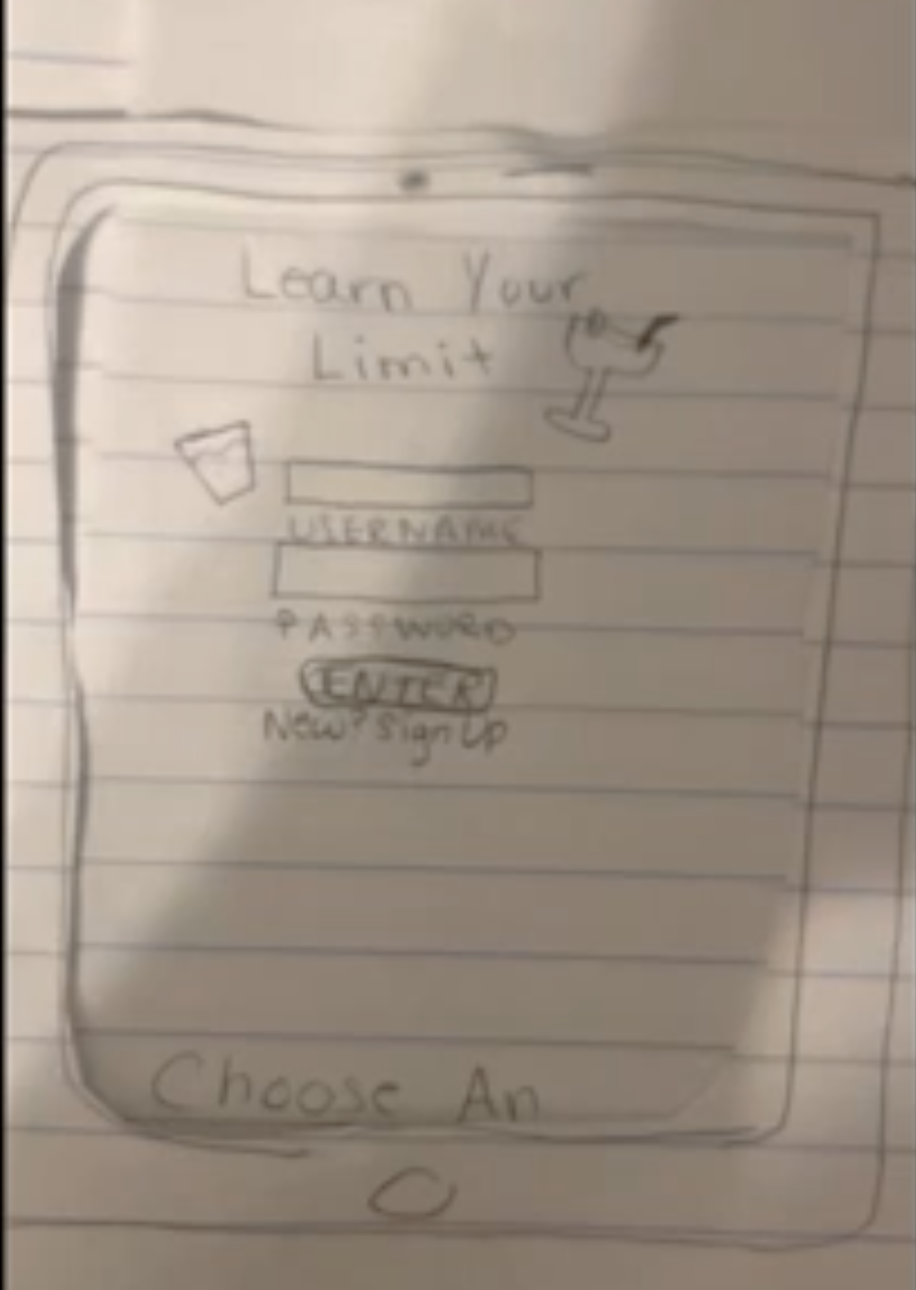 Learn Your
Limit
USERNAME
PASSWORD
ENTER
New? Sign Up
Choose An